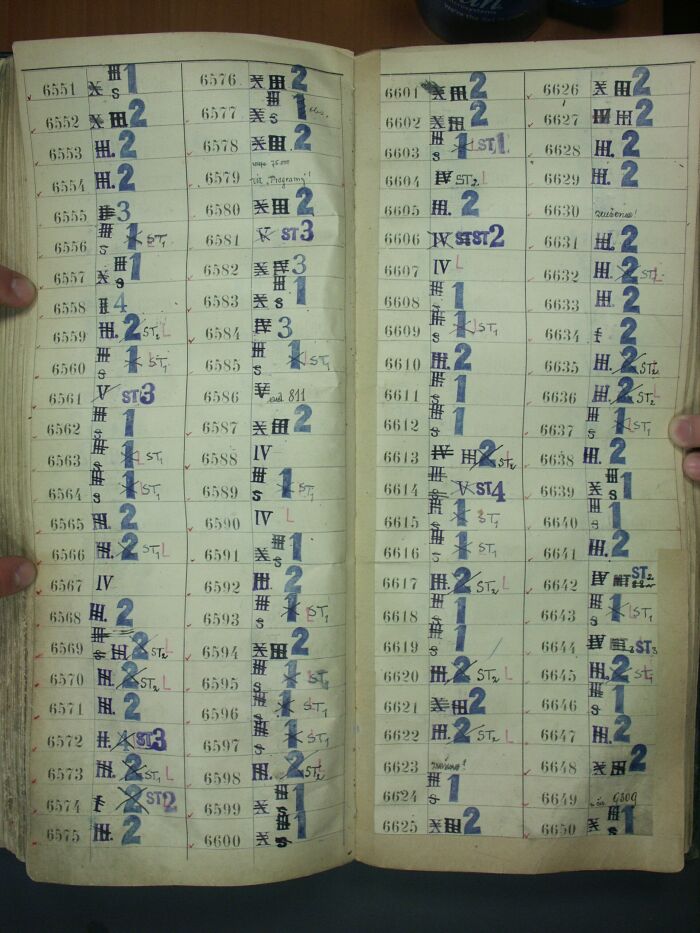 6551 1
6552 X III 2
6553 III. 2
6554 III. 2
6555 3
6556 1 ST1
6557 X III 1
6558 4
6559 III. 2 ST2 L
6560 III s 1 ST1
6561 V ST3
6562 III s 1
6563 III s 1 L ST1
6564 III s 1 ST1
6565 III. 2
6566 III. 2 ST1 L
6567 IV
6568 III. 2
6569 III. 2 ST2 L
6570 III. 2 ST2 L
6571 III. 2
6572 II. 4 ST3
6573 III. 2 ST1 L
6574 2 ST2
6575 III. 2
6576 X III 2
6577 III X s 1
6578 X III 2
6579
6580 X III 2
6581 V ST3
6582 X IV 3
6583 III X s 1
6584 IV 3
6585 III s 1 ST1
6586 V 811
6587 X III 2
6588 IV
6589 III s 1 ST1
6590 IV L
6591 X III s 1
6592 III. 2
6593 III s 1 L ST1
6594 X III 2
6595 III s 1 ST1
6596 III s 1 ST1
6597 III s 1 ST1
6598 III. 2 ST2
6599 X III s 1
6600 X III s 1
6601 X III 2
6602 X III 2
6603 III s 1 ST1
6604 IV ST2 L
6605 III. 2
6606 IV ST ST2
6607 IV L
6608 III s 1
6609 III s 1 L ST1
6610 III. 2
6611 III s 1
6612 III s 1
6613 IV III 2 ST2
6614 V ST4
6615 III s 1 ST1
6616 III s 1 ST1
6617 III. 2 ST2 L
6618 III s 1
6619 III s 1
6620 III. 2 ST2 L
6621 X III 2
6622 III. 2 ST2 L
6623
6624 III s 1
6625 X III 2
6626 X III 2
6627 IV III 2
6628 III. 2
6629 III. 2
6630 zrušeno!
6631 III. 2
6632 III. 2 ST2 L
6633 III. 2
6634 2
6635 III. 2 ST2
6636 III. 2 ST2 L
6637 III s 1 ST1
6638 III. 2
6639 X III s 1
6640 III s 1
6641 III. 2
6642 IV ST2
6643 III s 1 L ST1
6644 IV ST3
6645 III. 2 ST1
6646 III s 1
6647 III. 2
6648 X III 2
6649 viz 6509
6650 X III s 1